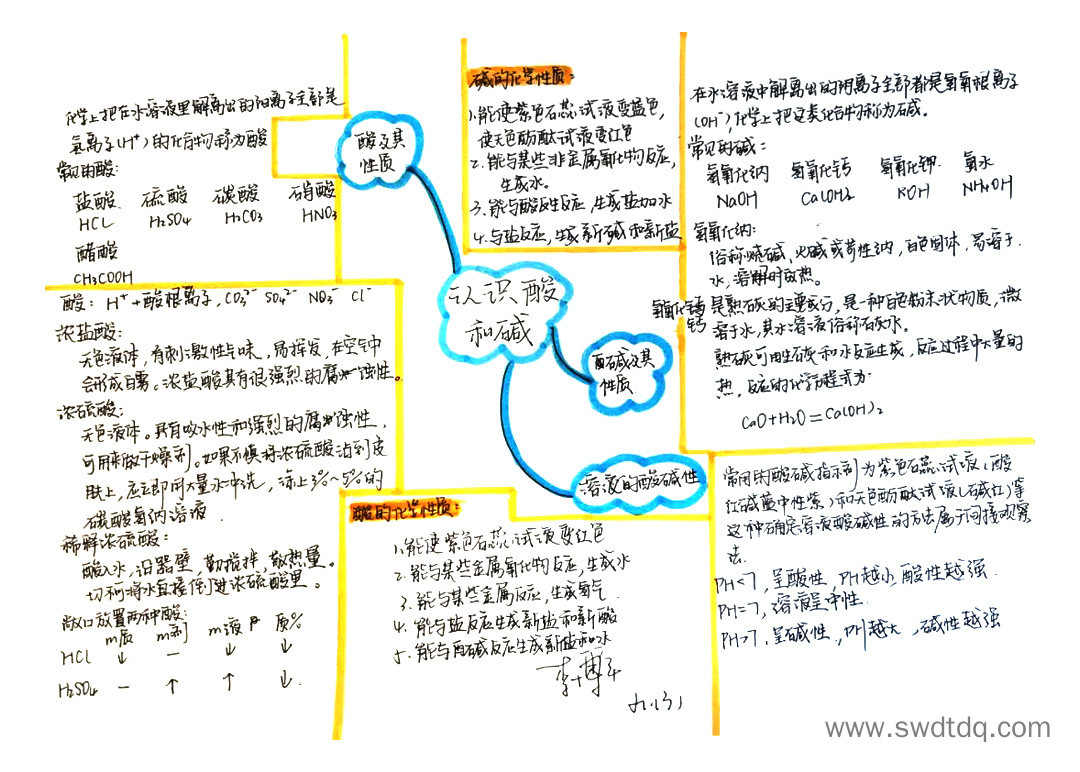 认识酸
和碱
酸及其
性质
化学上把在水溶液里解离出的阳离子全部是
氢离子(H⁺)的化合物称为酸
常见的酸:
盐酸 硫酸 碳酸 硝酸
HCL H₂SO₄ H₂CO₃ HNO₃
醋酸
CH₃COOH
酸: H⁺+酸根离子, CO₃²⁻ SO₄²⁻ NO₃⁻ Cl⁻
浓盐酸:
无色液体,有刺激性气味,易挥发,在空气中
会形成白雾。浓盐酸具有很强烈的腐蚀性。
浓硫酸:
无色液体。具有吸水性和强烈的腐蚀性,
可用来做干燥剂。如果不慎将浓硫酸沾到皮
肤上,应立即用大量水冲洗,涂上3%~5%的
碳酸氢钠溶液.
稀释浓硫酸:
酸入水,沿器壁,勤搅拌,散热量。
切不可将水直接倒进浓硫酸里。
敞口放置两种酸:
m质 m剂 m液 ρ 质%
HCL ↓ — ↓ ↓
H₂SO₄ — ↑ ↑ ↓
碱的化学性质:
1.能使紫色石蕊试液变蓝色,
使无色酚酞试液变红色
2.能与某些非金属氧化物反应,
生成水。
3.能与酸发生反应,生成盐加水
4.与盐反应,生成新碱和新盐
在水溶液中解离出的阴离子全部都是氢氧根离子
(OH⁻),化学上把这类化合物称为碱。
常见的碱:
氢氧化钠 氢氧化钙 氢氧化钾 氨水
NaOH Ca(OH)₂ KOH NH₃·OH
氢氧化钠:
俗称烧碱、火碱或苛性钠,白色固体,易溶于
水,溶解时放热。
氢氧化钙 是熟石灰的主要成分,是一种白色粉末状物质,微
钙 溶于水,其水溶液俗称石灰水。
熟石灰可用生石灰和水反应生成,反应过程中大量的
热,反应的化学方程式为
CaO+H₂O=Ca(OH)₂
碱及其
性质
溶液的酸碱性
常用的酸碱指示剂为紫色石蕊试液(酸
红碱蓝中性紫)和无色酚酞试液(碱红)等
这种确定溶液酸碱性的方法属于间接观察
法.
PH<7,呈酸性,PH越小,酸性越强.
PH=7,溶液呈中性.
PH>7,呈碱性,PH越大,碱性越强
酸的化学性质:
1.能使紫色石蕊试液变红色
2.能与某些金属氧化物反应,生成水
3.能与某些金属反应,生成氢气.
4.能与盐反应生成新盐和新酸
5.能与碱反应生成新盐和水
九.(3)
www.swdtdq.com